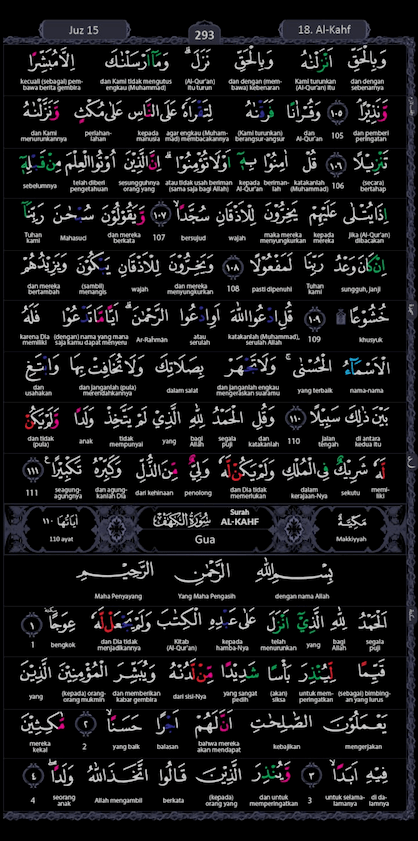 Juz 15
293
18. Al-Kahf
وَبِالْحَقِّ اَنْزَلْنٰهُ وَبِالْحَقِّ نَزَلَۗ وَمَآ اَرْسَلْنٰكَ اِلَّا مُبَشِّرًا
dan dengan sebenarnya Kami turunkan (Al-Qur'an) itu dan dengan (mem-bawa) kebenaran (Al-Qur'an) itu turun dan Kami tidak mengutus engkau (Muhammad) kecuali (sebagai) pem-bawa berita gembira
وَّنَذِيْرًاۘ ١٠٥ وَقُرْاٰنًا فَرَقْنٰهُ لِتَقْرَاَهٗ عَلَى النَّاسِ عَلٰى مُكْثٍ وَّنَزَّلْنٰهُ
dan pemberi peringatan 105 dan Al-Qur'an (Kami turunkan) berangsur-angsur agar engkau (Muham-mad) membacakannya kepada manusia perlahan-lahan dan Kami menurunkannya
تَنْزِيْلًا ١٠٦ قُلْ اٰمِنُوْا بِهٖٓ اَوْ لَا تُؤْمِنُوْاۗ اِنَّ الَّذِيْنَ اُوْتُوا الْعِلْمَ مِنْ قَبْلِهٖٓ
(secara) bertahap 106 katakanlah (Muhammad) berimanlah kepada Al-Qur'an atau tidak usah beriman (sama saja bagi Allah) sesungguhnya orang yang telah diberi pengetahuan sebelumnya
اِذَا يُتْلٰى عَلَيْهِمْ يَخِرُّوْنَ لِلْاَذْقَانِ سُجَّدًاۙ ١٠٧ وَّيَقُوْلُوْنَ سُبْحٰنَ رَبِّنَآ
Jika (Al-Qur'an) dibacakan kepada mereka maka mereka menyungkurkan wajah bersujud 107 dan mereka berkata Mahasuci Tuhan kami
اِنْ كَانَ وَعْدُ رَبِّنَا لَمَفْعُوْلًا ١٠٨ وَيَخِرُّوْنَ لِلْاَذْقَانِ يَبْكُوْنَ وَيَزِيْدُهُمْ
sungguh, janji Tuhan kami pasti dipenuhi 108 dan mereka menyungkurkan wajah (sambil) menangis dan mereka bertambah
خُشُوْعًا ۩ ١٠٩ قُلِ ادْعُوا اللّٰهَ اَوِ ادْعُوا الرَّحْمٰنَۗ اَيًّا مَّا تَدْعُوْا فَلَهُ
khusyuk 109 katakanlah (Muhammad), serulah Allah atau serulah Ar-Rahmān (dengan) nama yang mana saja kamu dapat menyeru karena Dia memiliki
الْاَسْمَاۤءُ الْحُسْنٰىۚ وَلَا تَجْهَرْ بِصَلَاتِكَ وَلَا تُخَافِتْ بِهَا وَابْتَغِ
nama-nama yang terbaik dan janganlah engkau mengeraskan suaramu dalam salat dan janganlah (pula) merendahkannya dan usahakan
بَيْنَ ذٰلِكَ سَبِيْلًا ١١٠ وَقُلِ الْحَمْدُ لِلّٰهِ الَّذِيْ لَمْ يَتَّخِذْ وَلَدًا وَّلَمْ يَكُنْ
di antara kedua itu jalan tengah 110 dan katakanlah segala puji bagi Allah yang tidak mempunyai anak dan tidak (pula)
لَّهٗ شَرِيْكٌ فِى الْمُلْكِ وَلَمْ يَكُنْ لَّهٗ وَلِيٌّ مِّنَ الذُّلِّ وَكَبِّرْهُ تَكْبِيْرًا ١١١
memi-liki sekutu dalam kerajaan-Nya dan Dia tidak memerlukan penolong dari kehinaan dan agung-kanlah Dia seagung-agungnya 111
مَكِّيَّةٌ
Makkiyyah
Surah AL-KAHF
سُوْرَةُ الْكَهْفِ
Gua
اٰيَاتُهَا ١١٠
110 ayat
بِسْمِ اللّٰهِ الرَّحْمٰنِ الرَّحِيْمِ
dengan nama Allah Yang Maha Pengasih Maha Penyayang
اَلْحَمْدُ لِلّٰهِ الَّذِيْٓ اَنْزَلَ عَلٰى عَبْدِهِ الْكِتٰبَ وَلَمْ يَجْعَلْ لَّهٗ عِوَجًاۜ ١
segala puji bagi Allah yang telah menurunkan kepada hamba-Nya Kitab (Al-Qur'an) dan Dia tidak menjadikannya bengkok 1
قَيِّمًا لِّيُنْذِرَ بَأْسًا شَدِيْدًا مِّنْ لَّدُنْهُ وَيُبَشِّرَ الْمُؤْمِنِيْنَ الَّذِيْنَ
(sebagai) bimbing-an yang lurus untuk mem-peringatkan (akan) siksa yang sangat pedih dari sisi-Nya dan memberikan kabar gembira (kepada) orang-orang mukmin yang
يَعْمَلُوْنَ الصّٰلِحٰتِ اَنَّ لَهُمْ اَجْرًا حَسَنًاۙ ٢ مَّاكِثِيْنَ
mengerjakan kebajikan bahwa mereka akan mendapat balasan yang baik 2 mereka kekal
فِيْهِ اَبَدًاۙ ٣ وَّيُنْذِرَ الَّذِيْنَ قَالُوا اتَّخَذَ اللّٰهُ وَلَدًاۖ ٤
di da-lamnya untuk selama-lamanya 3 dan untuk memperingatkan (kepada) orang yang berkata Allah mengambil seorang anak 4